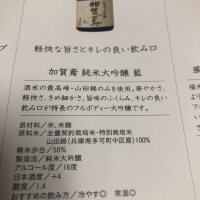 加賀鳶
軽快な旨さとキレの良い飲み口
加賀鳶 純米大吟醸 藍
酒米の最高峰・山田錦のみを使用。華やかさ、
軽快さ、きめ細かさ、旨味のふくらみ、キレの良い
飲み口が特長のフルボディー大吟醸です。
原材料／米、米麹
原料米／全量契約栽培米・特別栽培米
山田錦（兵庫県多可町中区産）100%
精米歩合／50%
製造法／純米大吟醸
アルコール度／16度
日本酒度／+4
酸度／1.4
おすすめの飲み方／冷やす◎ 常温○